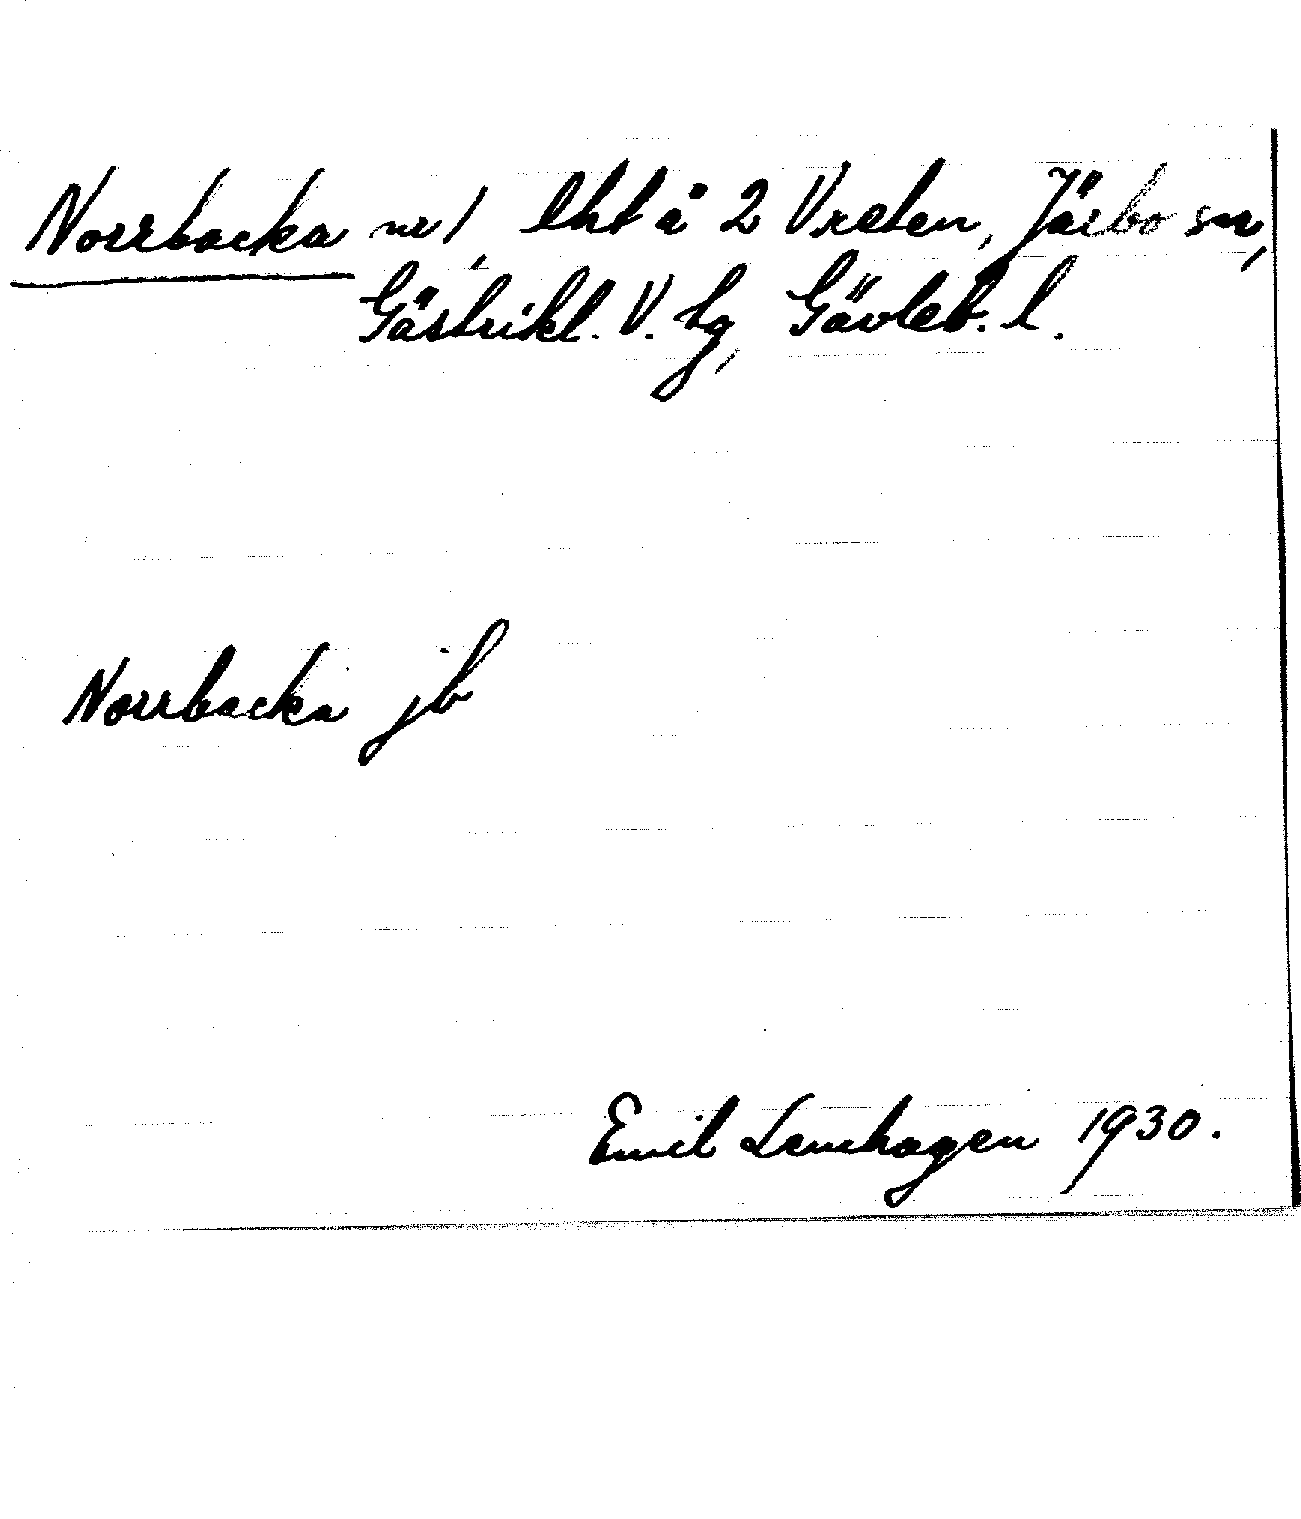 Norrbacka nr 1, lht å 2 Vreten, Järbo sn,
Gästrikl. V. tg, Gävleb. l.
Norrbacka jb
Emil Lemhagen 1930.